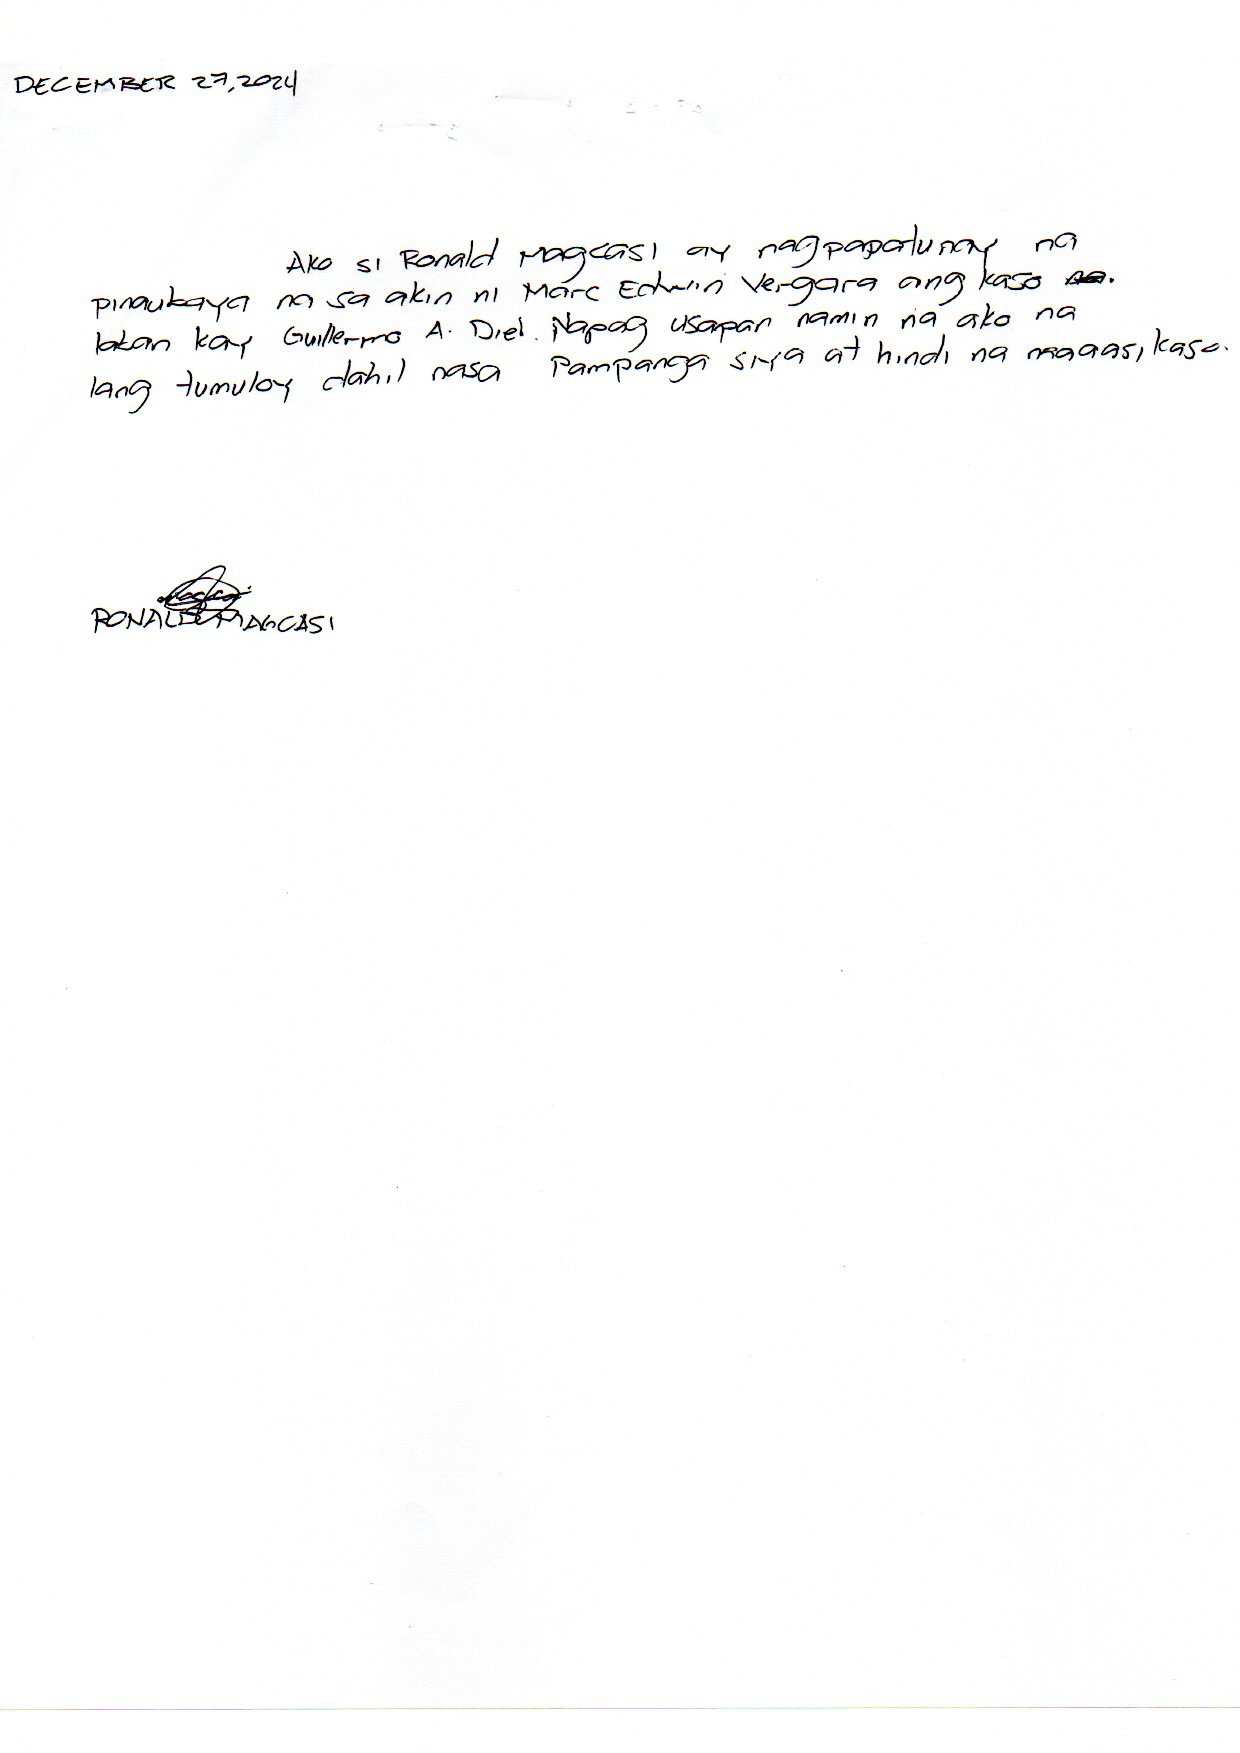 DECEMBER 27, 2024
Ako si Ronald Magcasi ay nagpapatunay na
pinaubaya na sa akin ni Marc Edwin Vergara ang kaso
laban kay Guillermo A. Diel. Napag usapan namin na ako na
lang tumuloy dahil nasa Pampanga siya at hindi na maaasikaso.
RONALD MAGCASI